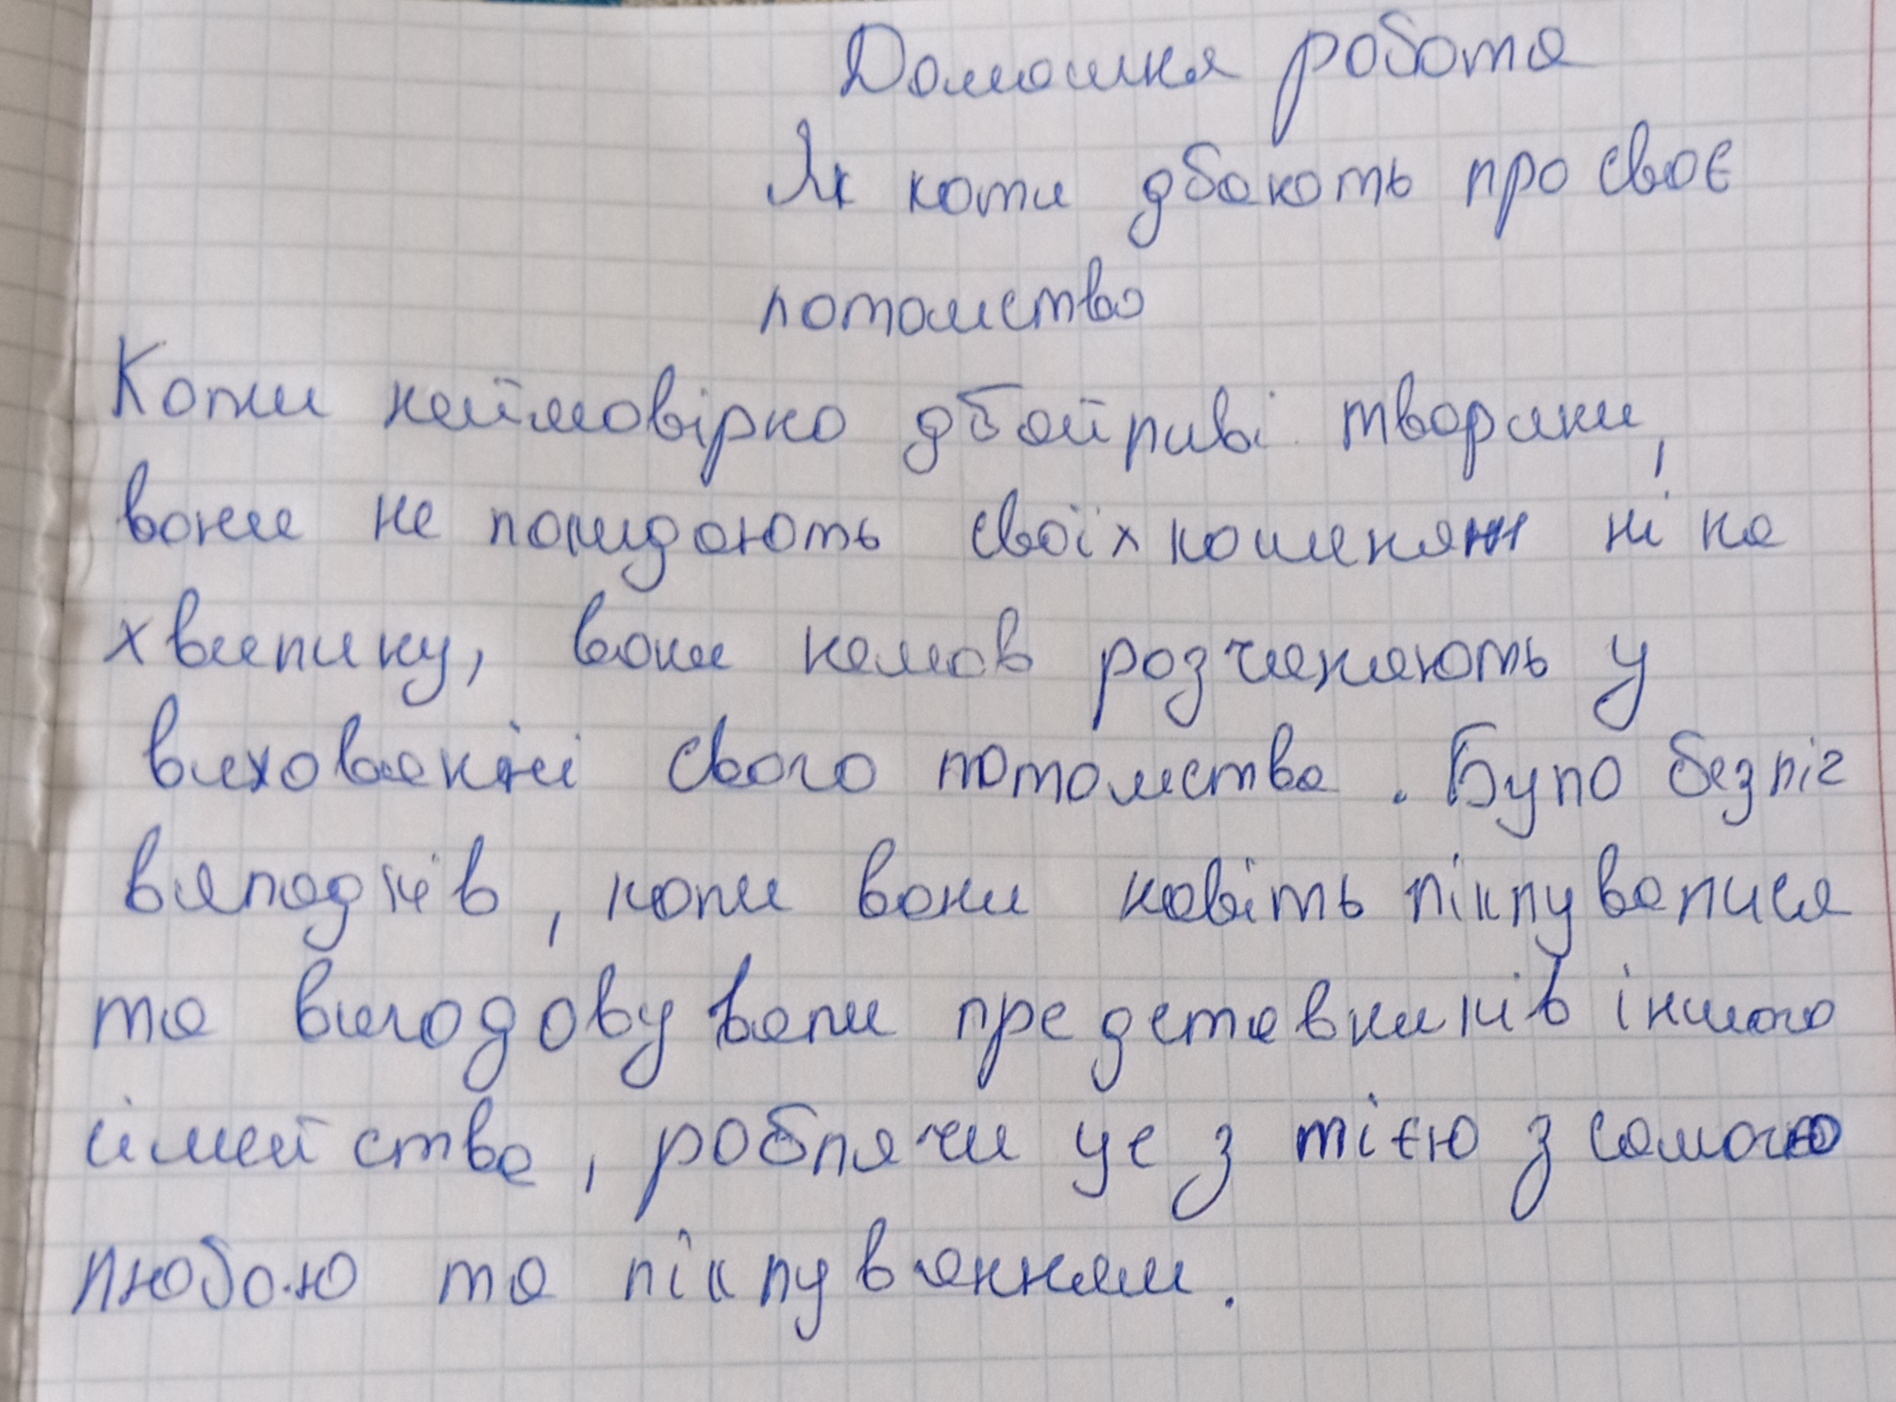 Домашня робота
Як коти дбають про своє
потомство
Коти неймовірно дбайливі тварини,
вони не покидають своїх кошенят ні на
хвилину, вони немов розчиняють у
вихованні свого потомства. Було безліч
випадків, коли вони навіть піклувалися
та вигодовували представників іншого
імейства, роблячи це з тією з самою
любою та піклуванням.